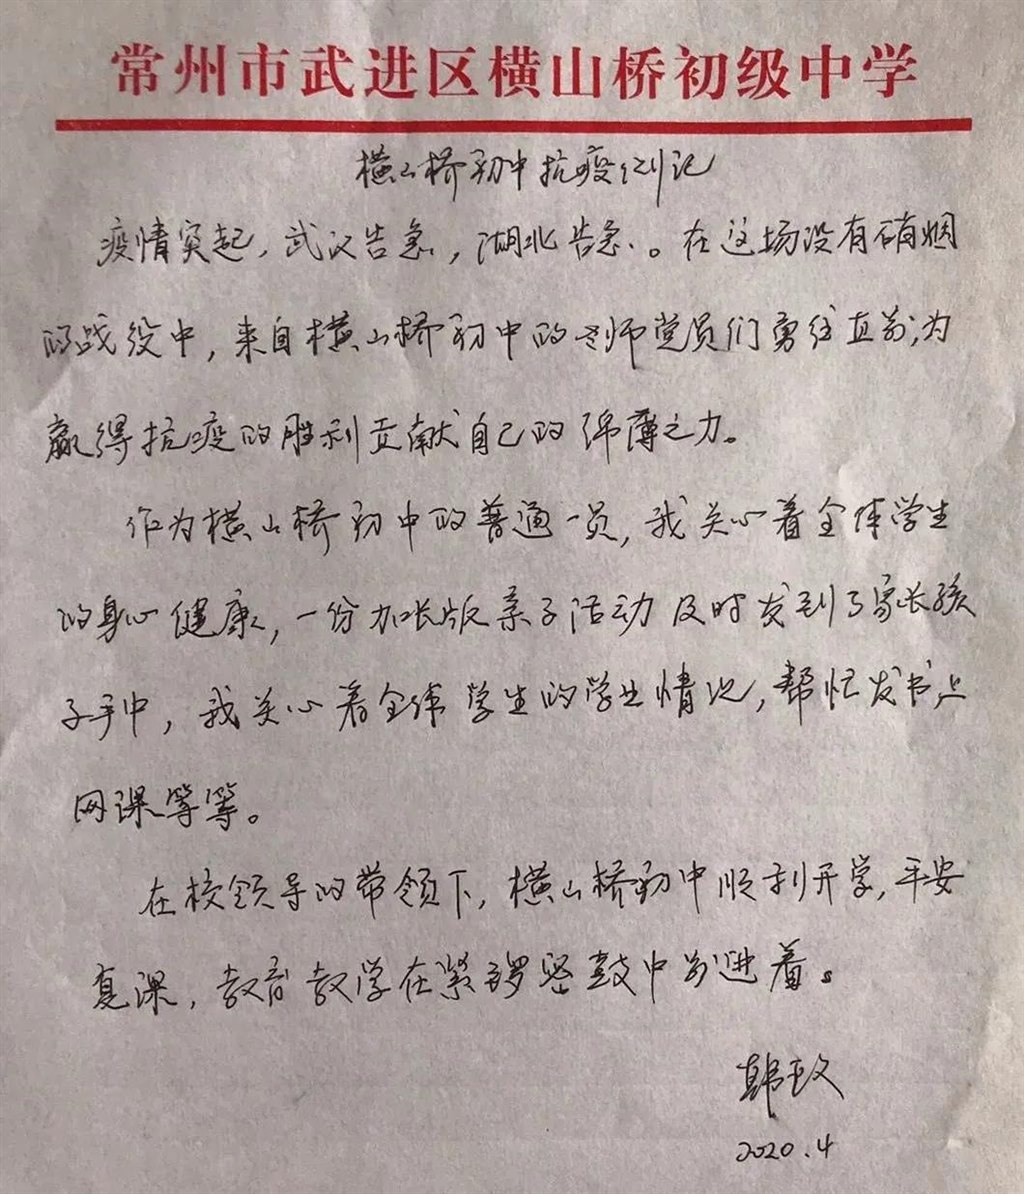 常州市武进区横山桥初级中学
横山桥初中抗疫侧记
疫情突起，武汉告急，湖北告急。在这场没有硝烟
的战役中，来自横山桥初中的老师党员们勇往直前，为
赢得抗疫的胜利贡献自己的绵薄之力。
作为横山桥初中的普通一员，我关心着全体学生
的身心健康，一份加长版亲子活动及时发到了家长孩
子手中，我关心着全体学生的学业情况，帮忙发书上
网课等等。
在校领导的带领下，横山桥初中顺利开学，平安
复课，教育教学在紧锣密鼓中前进着。
韩玫
2020.4